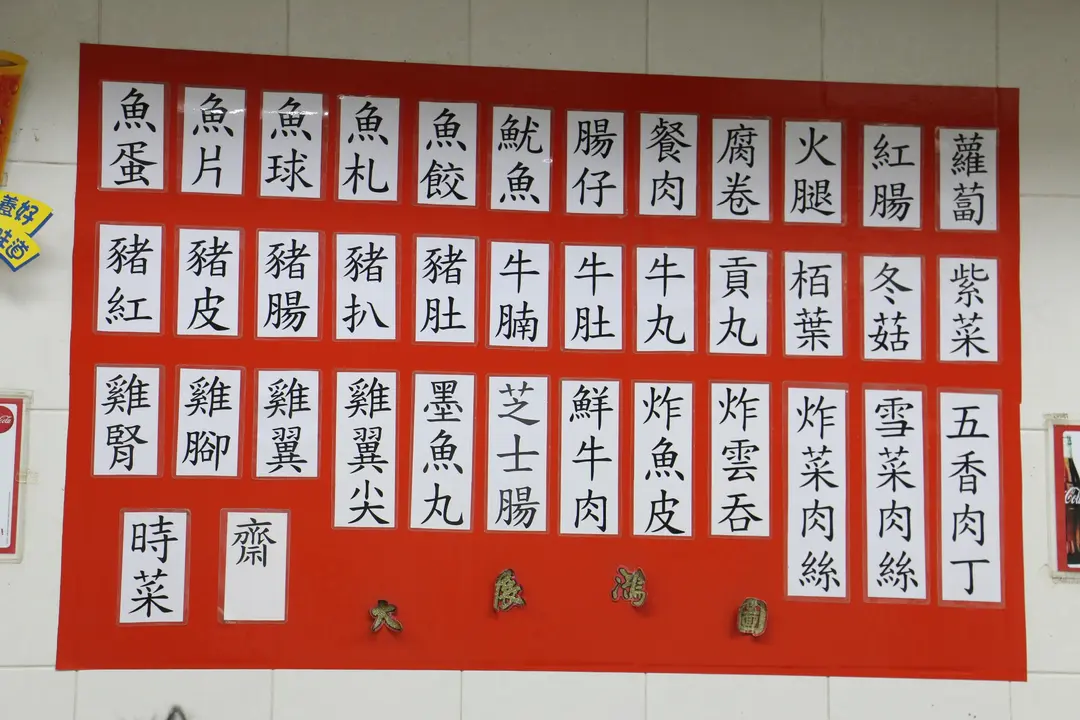 魚蛋
魚片
魚球
魚札
魚餃
魷魚
腸仔
餐肉
腐卷
火腿
紅腸
蘿蔔
豬紅
豬皮
豬腸
豬扒
豬肚
牛腩
牛肚
牛丸
貢丸
栢葉
冬菇
紫菜
雞腎
雞腳
雞翼
雞翼尖
墨魚丸
芝士腸
鮮牛肉
炸魚皮
炸雲吞
炸菜肉絲
雪菜肉絲
五香肉丁
時菜
齋
大展鴻圖
養好
味道
Coca-Cola